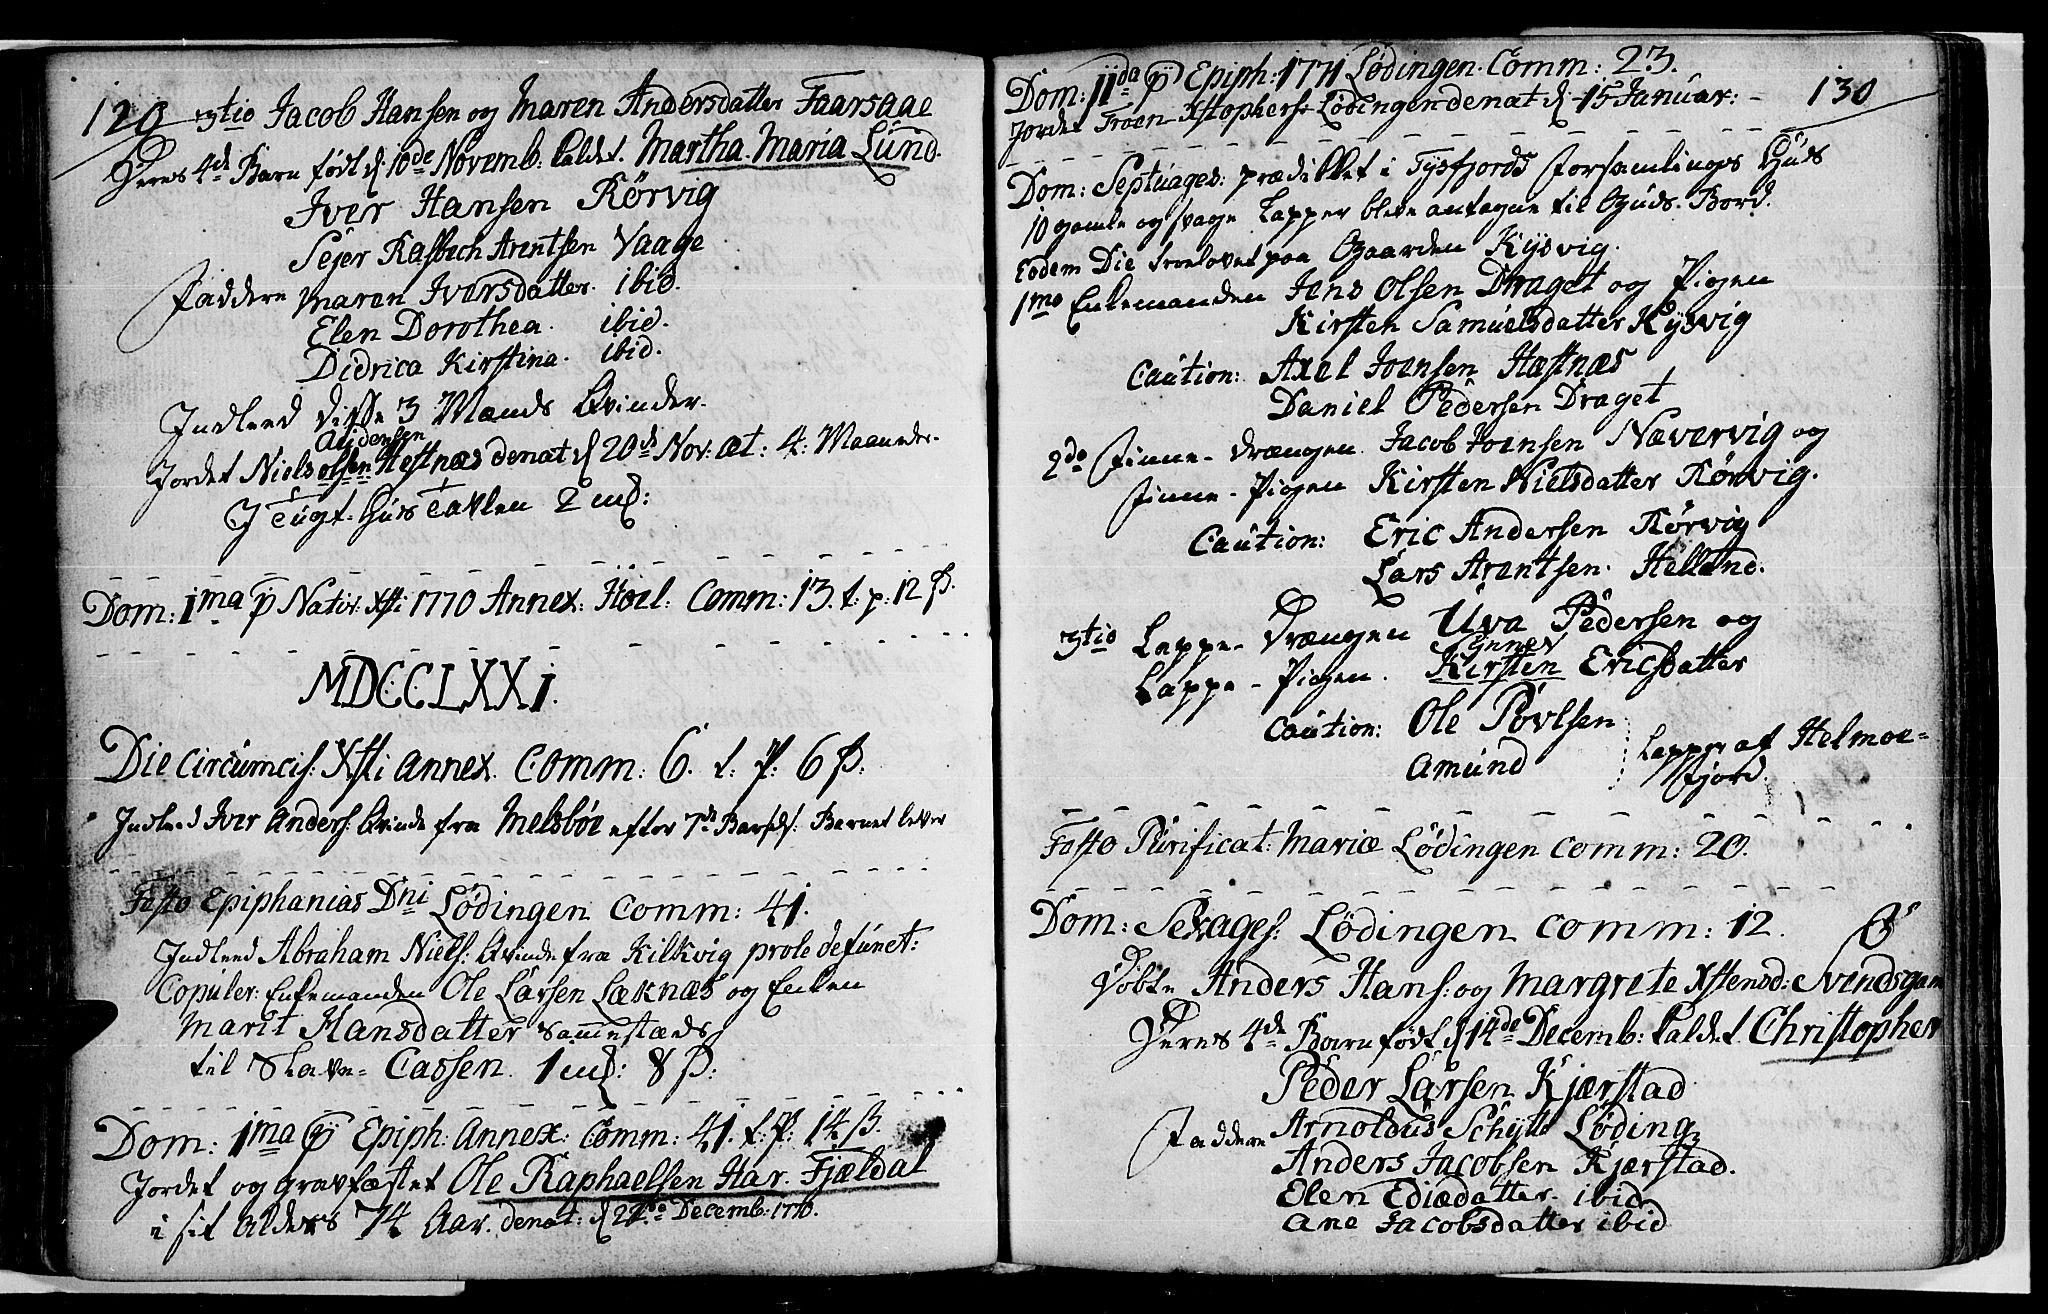 129
3tio Jacob Hansen og Maren Andersdatter Faarsaae
Deres 4de Barn født d 10de Novemb: kaldet Martha Maria Lund.
Iver Hansen Rørvig
Sejer Rasbech Arentsen Vaage
Faddere Maren Iversdatter. ibid.
Elen Dorothea. ibid.
Didrica Kirstina. ibid.
Indleed disse 3 Mænds Qvinder.
Jordet Niels olsen Audensen Hestnæs denat d 20de Nov: æt: 4: Maaneder.
I Tugt-Huus Tavlen 2 mk:
Dom: 1ma p Nativ: Xsti 1770 Annex: Hoel: Comm: 13. t. p: 12 ß.
MDCCLXXI.
Die Circumcis: Xsti annex. Comm: 6. t: P: 6 ß:
Indleed Iver Anders: Qvinde fra Melsbøe efter 7de Barsel: Barnet lever
Festo Epiphanias Dni Lødingen Comm: 41.
Indleed Abraham Niels: Qvinde fra Kilkvig prole defunct:
Copuler: Enkemanden Ole Larsen Læknæs og Enken
Marit Hansdatter sammestæds
til Slave-Cassen. 1 mk: 8 ß:
Dom: 1ma p Epiph: Annex: Comm: 41. t: P: 14 ß.
Jordet og gravfæstet Ole Raphaelsen Har. Fjældal
i sit Alders 74 Aar. denat: d Decemb: 1770.
130
Dom: IIda p Epiph: 1771 Lødingen. Comm: 23.
Jordet Troen Xstophers: Lødingen denat d 15 Januar:
Dom: Septuages: prædikket i Tysfjords Forsamlings Huus
10 gamle og svage Lapper bleve antagne til Guds Bord.
Eodem Die trolovet paa Gaarden Kysvig.
1mo Enkemanden Jens Olsen Draget og Pigen
Kirsten Samuelsdatter Kysvig
Caution: Axel Joensen Hæstnæs
Daniel Pedersen Draget
2do Finne-Drængen Jacob Joensen Nævervig og
Finne-Pigen Kirsten Nielsdatter Rørvig.
Caution: Eric Andersen Rørvig
Lars Arentsen. Helland.
3tio Lappe-Drængen Uva Pedersen og
Lappe-Pigen. Kirsten Synnev Ericsdatter
Caution: Ole Povlsen
Amund
Lapper af Helmoe-
fjord.
Festo Purificat: Mariæ Lødingen Comm: 20.
Dom: Sexages: Lødingen Comm: 12.
Døbte Anders Hans: og Margrete Xstensd: Svendsgam
Deres 4de Barn født d 14de Decemb: kaldet Christopher
Peder Larsen Kjærstad
Faddere Arnoldus Schytte Løding
Anders Jacobsen Kjærstad.
Elen Ediædatter. ibid
Ane Jacobsdatter ibid